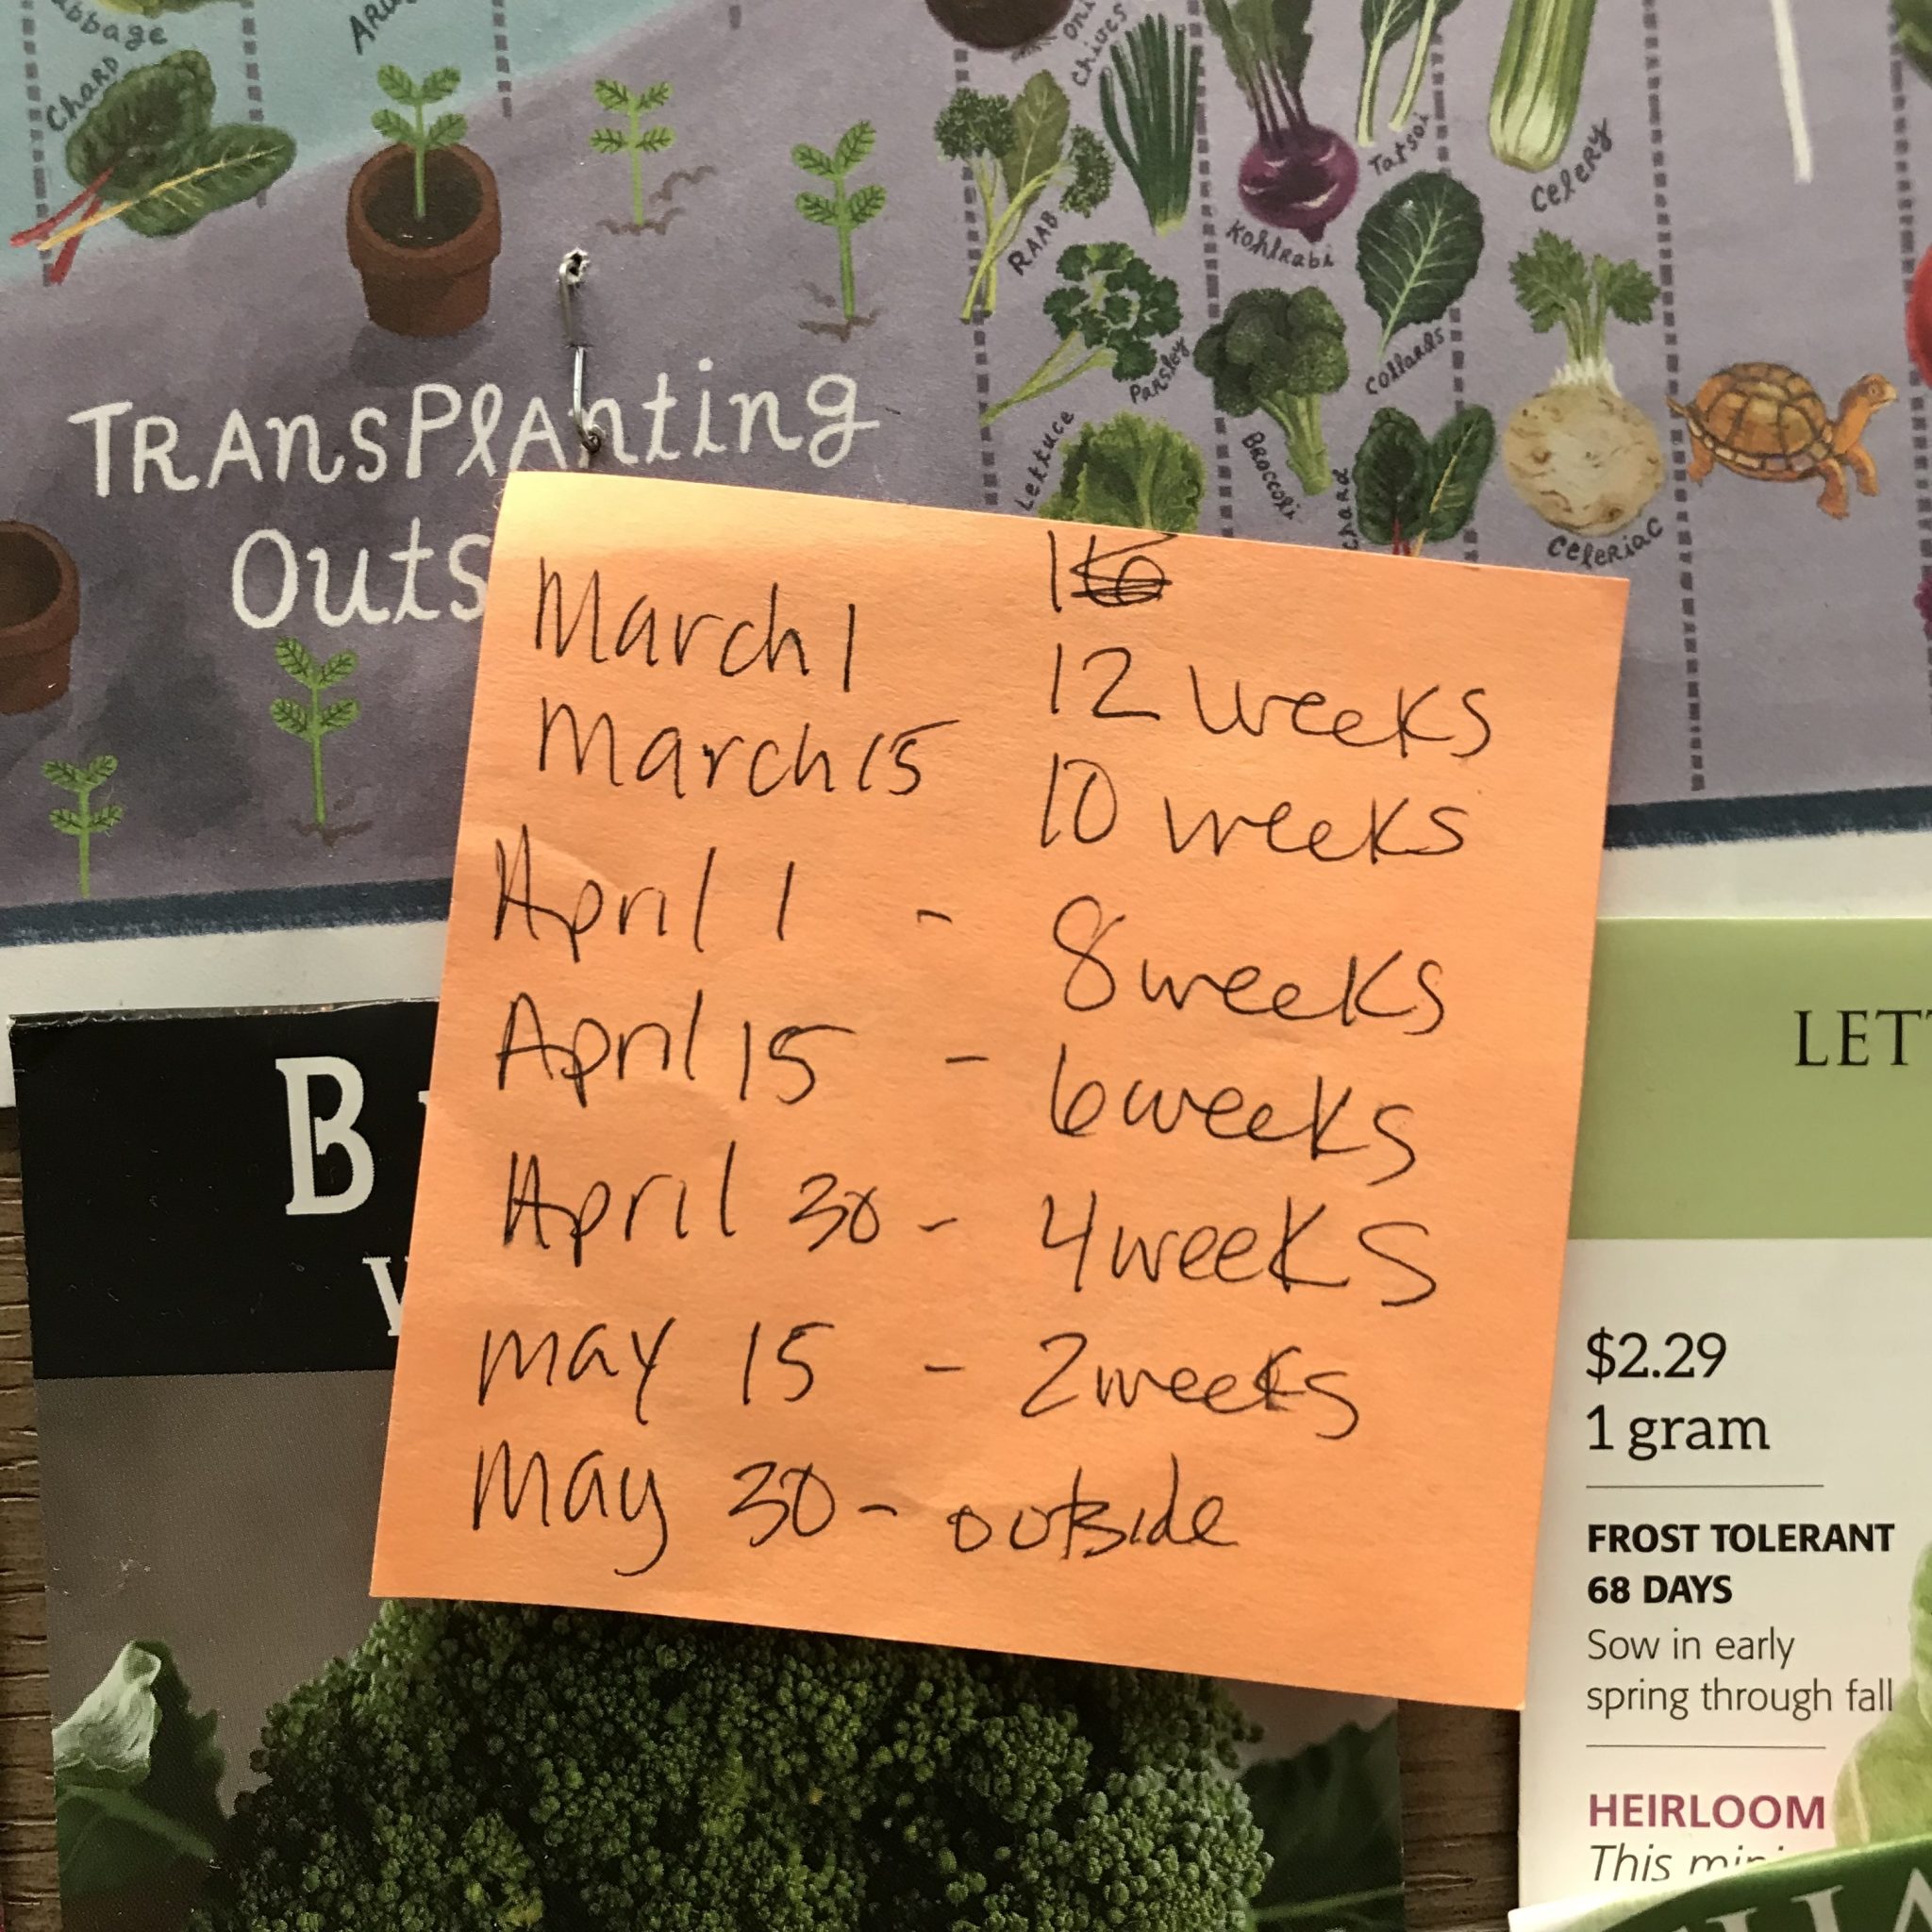 Chard
RAAB
Chives
Kohlrabi
Tatsoi
Celery
Parsley
Collards
Lettuce
Broccoli
Chard
Celeriac
TRAnsPlAnting
Outs
March 1
12 weeks
March 15
10 weeks
April 1 - 8 weeks
April 15 - 6 weeks
April 30 - 4 weeks
May 15 - 2 weeks
May 30 - outside
B
LET
$2.29
1 gram
FROST TOLERANT
68 DAYS
Sow in early
spring through fall
HEIRLOOM
This mini